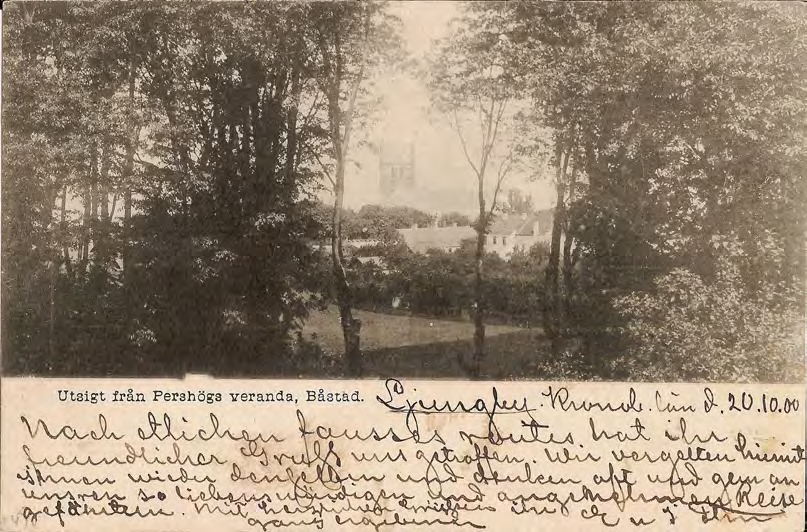 Utsigt från Pershögs veranda, Båstad.
Ljungby. Kronob. län d. 20.10.00
Nach etlichen fausses routes hat ihr
freundlicher Gruß uns getroffen. Wir vergelten hiermit
ihnen wieder denselben und denken oft und gern an
unsren so liebenswürdigen und angenehmen Reise
gefährten. Mit herzlichen Grüssen
ganz ergebener